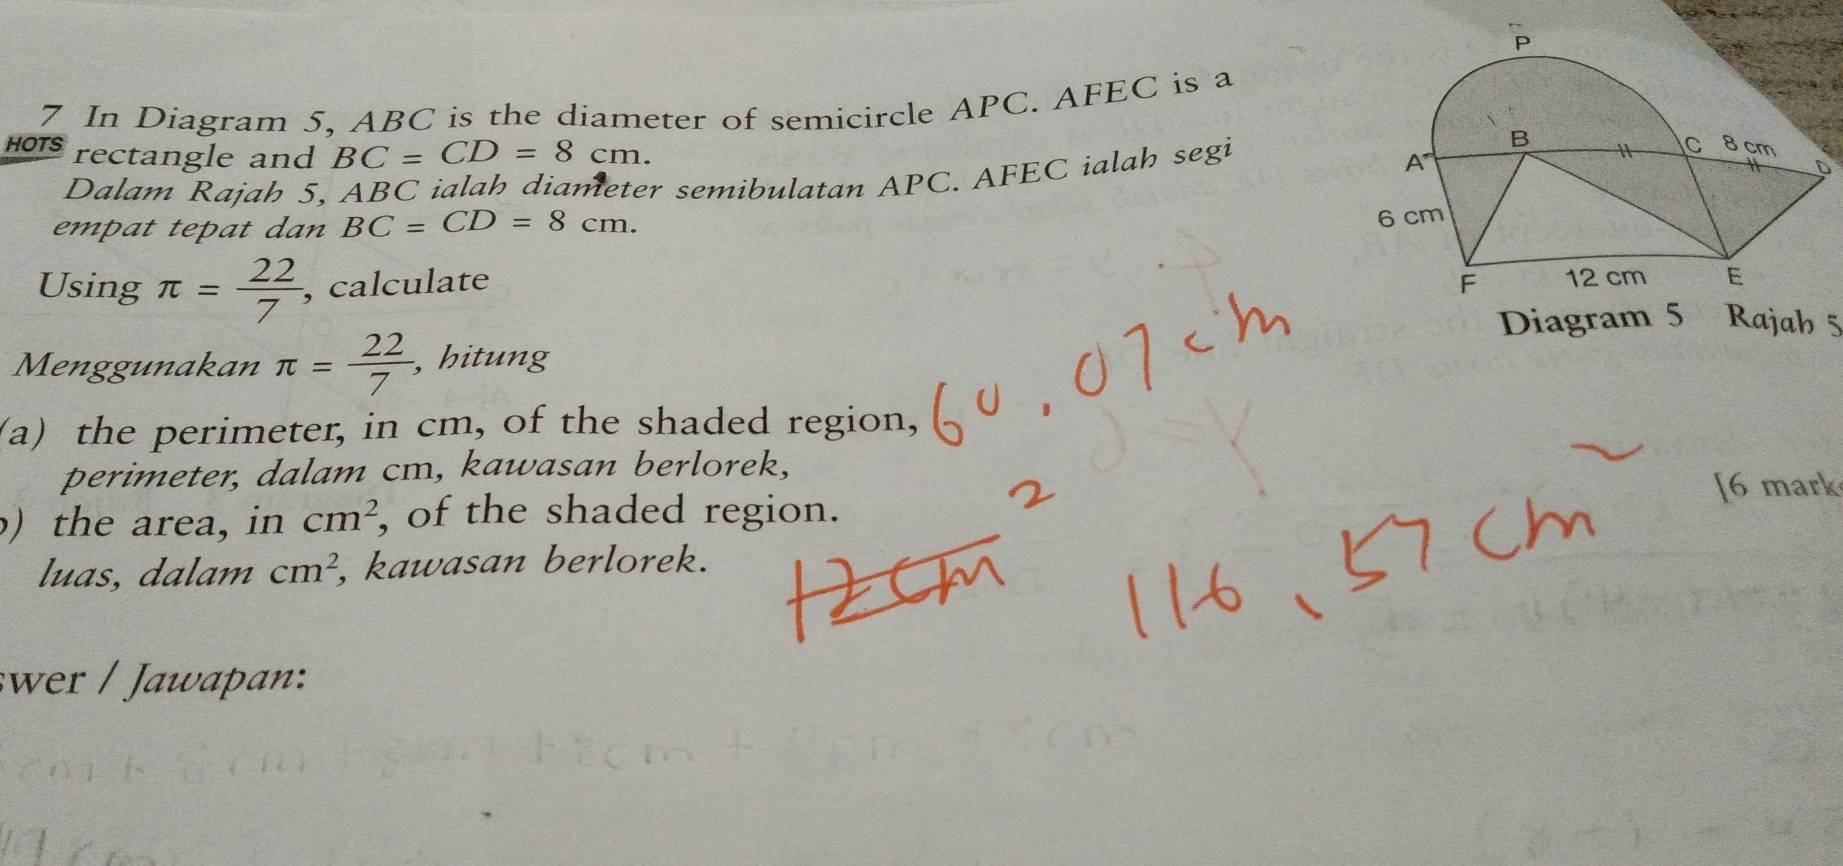 7 In Diagram 5, ABC is the diameter of semicircle APC. AFEC is a
HOTS rectangle and BC = CD = 8 cm.
Dalam Rajah 5, ABC ialah diameter semibulatan APC. AFEC ialah segi
empat tepat dan BC = CD = 8 cm.
Using π = 22/7, calculate
Menggunakan π = 22/7, hitung
(a) the perimeter, in cm, of the shaded region, 60.07cm
perimeter, dalam cm, kawasan berlorek,
) the area, in cm², of the shaded region.
luas, dalam cm², kawasan berlorek.
12cm² 116.57cm²
[6 mark
swer / Jawapan:
P
B
A
C 8 cm
D
6 cm
F 12 cm E
Diagram 5 Rajah 5